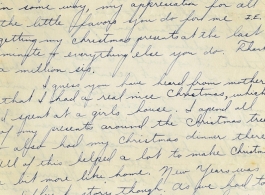 in some way, my appreciation for all
the little favors you do for me I.E.
getting my christmas presents at the last
minute & everything else you do. Thanks
a million sis.
I guess you have heard from mother
that I had a real nice Christmas, which
I spent at a girls house. I opened all
of my presents around the Christmas tree
also had my Christmas dinner there
all of this helped a lot to make Christmas
a bit more like home. New Years was
story though. As you